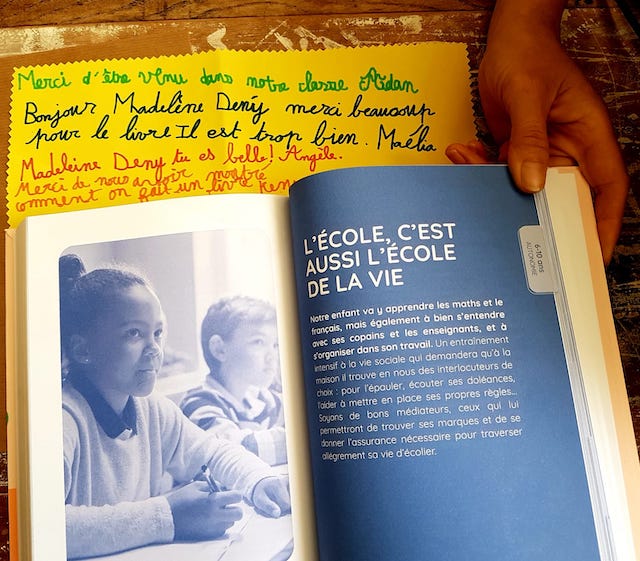 Merci d'être venu dans notre classe Aïdan
Bonjour Madelêine Dený merci beaucoup
pour le livre Il est trop bien. Maélia
Madeleine Deny tu es belle! Angèle.
Merci de nous avoir montré
comment on fait un livre Ken
L'ÉCOLE, C'EST
AUSSI L'ÉCOLE
DE LA VIE
Notre enfant va y apprendre les maths et le
français, mais également à bien s'entendre
avec ses copains et les enseignants, et à
s'organiser dans son travail. Un entraînement
intensif à la vie sociale qui demandera qu'à la
maison il trouve en nous des interlocuteurs de
choix : pour l'épauler, écouter ses doléances,
l'aider à mettre en place ses propres règles...
Soyons de bons médiateurs, ceux qui lui
permettront de trouver ses marques et de se
donner l'assurance nécessaire pour traverser
allégrement sa vie d'écolier.
6-10 ans
AUTONOMIE